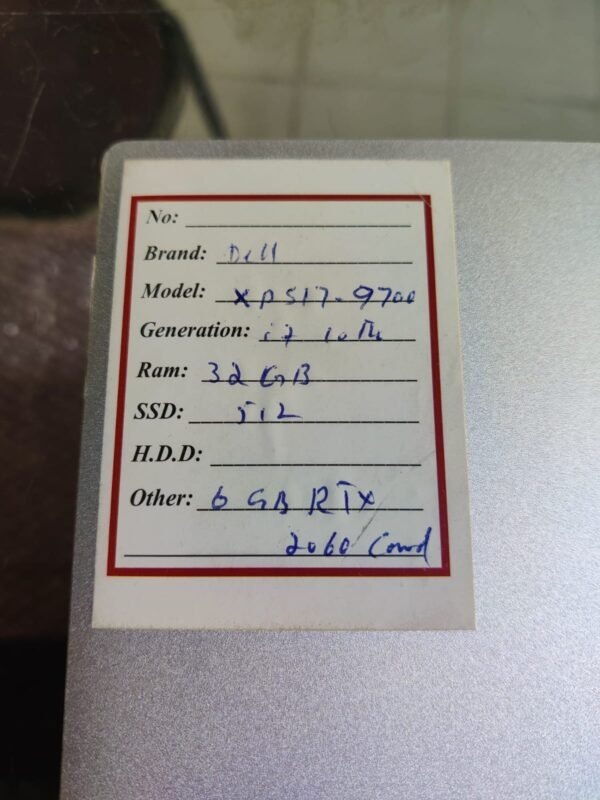 No:
Brand: Dell
Model: XPS17-9700
Generation: i7 10th
Ram: 32 GB
SSD: 512
H.D.D:
Other: 6 GB RTX
2060 Card